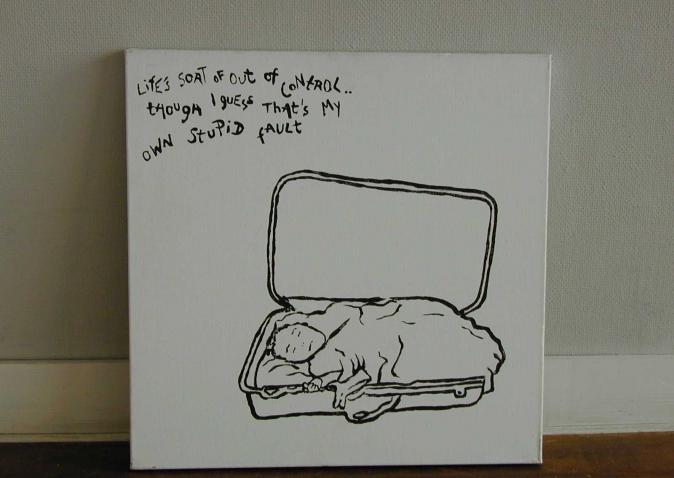 LiFE'S SORT OF OUT OF CONTROL..
tHOUGH I GUESS THAT'S MY
OWN STUPiD fAULT